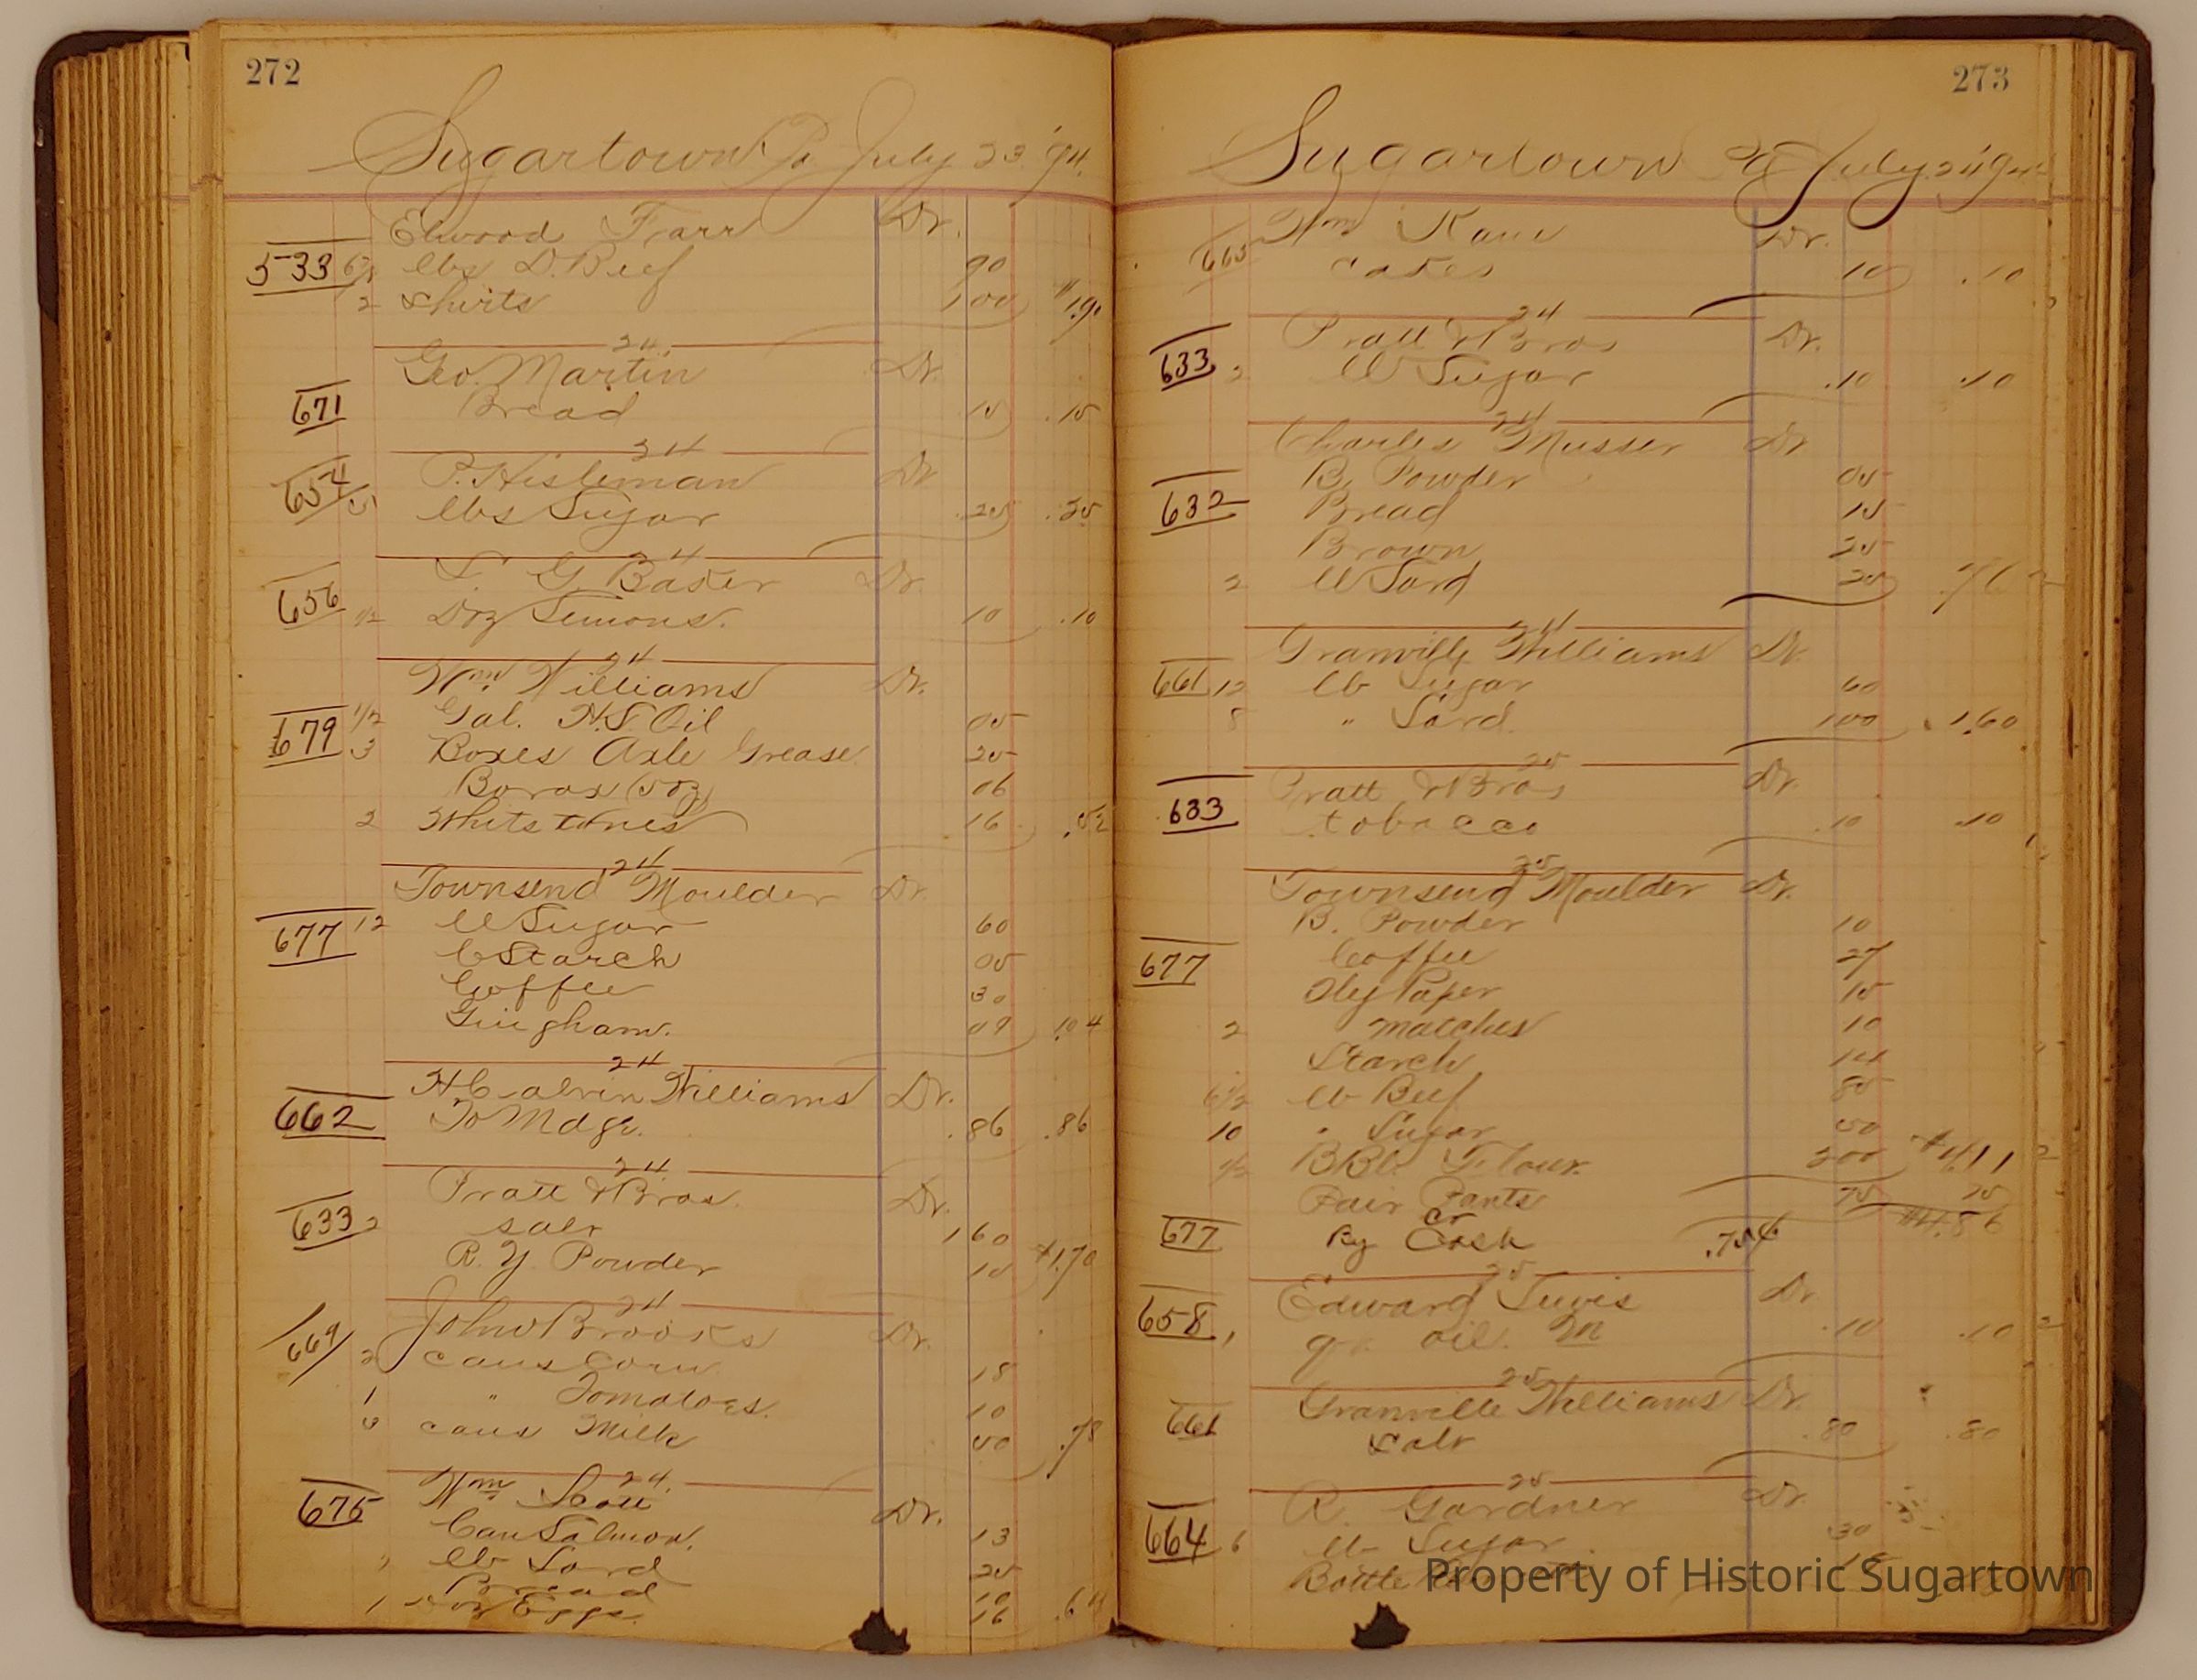 272
Sugartown Pa July 23 '94.
Elwood Farr Dr.
533 lbs D. Beef 90
2 Shirts 100 $1.90
24
Geo. Martin Dr.
671 Bread 15 .15
24
P. Hisleman Dr
654 5 lbs Sugar .25 .25
24
L G Baker Dr.
656 1/2 Doz Lemons. 10 .10
24
Wm Williams Dr.
679 1/2 Gal. H.L. Oil 05
3 Boxes Axle Grease 25
Borax (5oz) 06
2 Whetstones 16 .52
24
Townsend Moulder Dr.
677 12 lb Sugar 60
C Starch 05
Coffee 30
Gingham. 09 1.04
24
H Calvin Williams Dr.
662 To Mdse. .86 .86
24
Pratt & Bros. Dr.
633 2 salt 160
R. Y. Powder 10 $1.70
24
John Brooks Dr.
669 2 cans Corn 18
1 " Tomatoes. 10
5 cans Milk 50 .78
24.
675 Wm Scott Dr.
Can Salmon. 13
2 lb Lard 25
Bread 10
1 Doz Eggs. 16 .64
273
Sugartown Pa July 24 '94
665 Wm Kane Dr.
cakes 10 .10
24
Pratt & Bros Dr.
633 2 lb Sugar .10 .10
24
Charles Musser Dr
B. Powder 05
632 Bread 15
Brown 25
2 lb Lard 25
24
Granville Williams Dr.
661 12 lb Sugar 60
8 " Lard. 100 1.60
25
Pratt & Bros Dr.
633 tobacco .10 .10
25
Townsend Moulder Dr.
B. Powder 10
677 Coffee 27
Fly Paper 15
2 matches 10
Starch 14
6 1/2 lb Beef 85
10 " Sugar 50
1/2 BBl. Flour. 200 $4.11
Pair Pants 75 75
Cr $4.86
677 By Cash
25
Edward Lewis Dr
658 1 qt oil. .10 .10
25
Granville Williams Dr.
661 Salt .80 .80
25
R. Gardner Dr
664 6 lb Sugar 30
Bottle
Property of Historic Sugartown